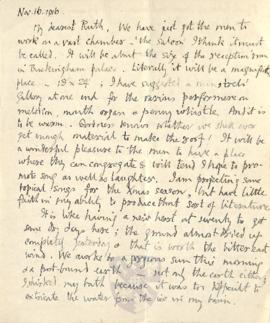 Nov. 16. 1916.
My dearest Ruth, We have just got the men to
work on a vast chamber - the saloon I think it must
be called. It will be about the size of the reception room
in Buckingham palace. Literally it will be a magnificent
place - 18 x 24; I have suggested a minstrels'
Gallery at one end for the various performers on
melodeon, mouth organ & penny whistle. And it is
to be warm. Goodness knows whether we shall ever
get enough material to make the roof! It will be
a wonderful pleasure to the men to have a place
where they can congregate & will tend I hope to pro-
mote song as well as laughter. I am projecting some
topical songs for the Xmas season, but have little
faith in my ability to produce that sort of literature.
It is like having a new heart at seventy to get
some dry days here; the ground almost dried up
completely yesterday & that is worth the bitter east
wind. We woke to a gorgeous sun this morning
& a frost-bound earth; not only the earth either
I my bath because it was too difficult to
extricate the water from the ice in my basin.